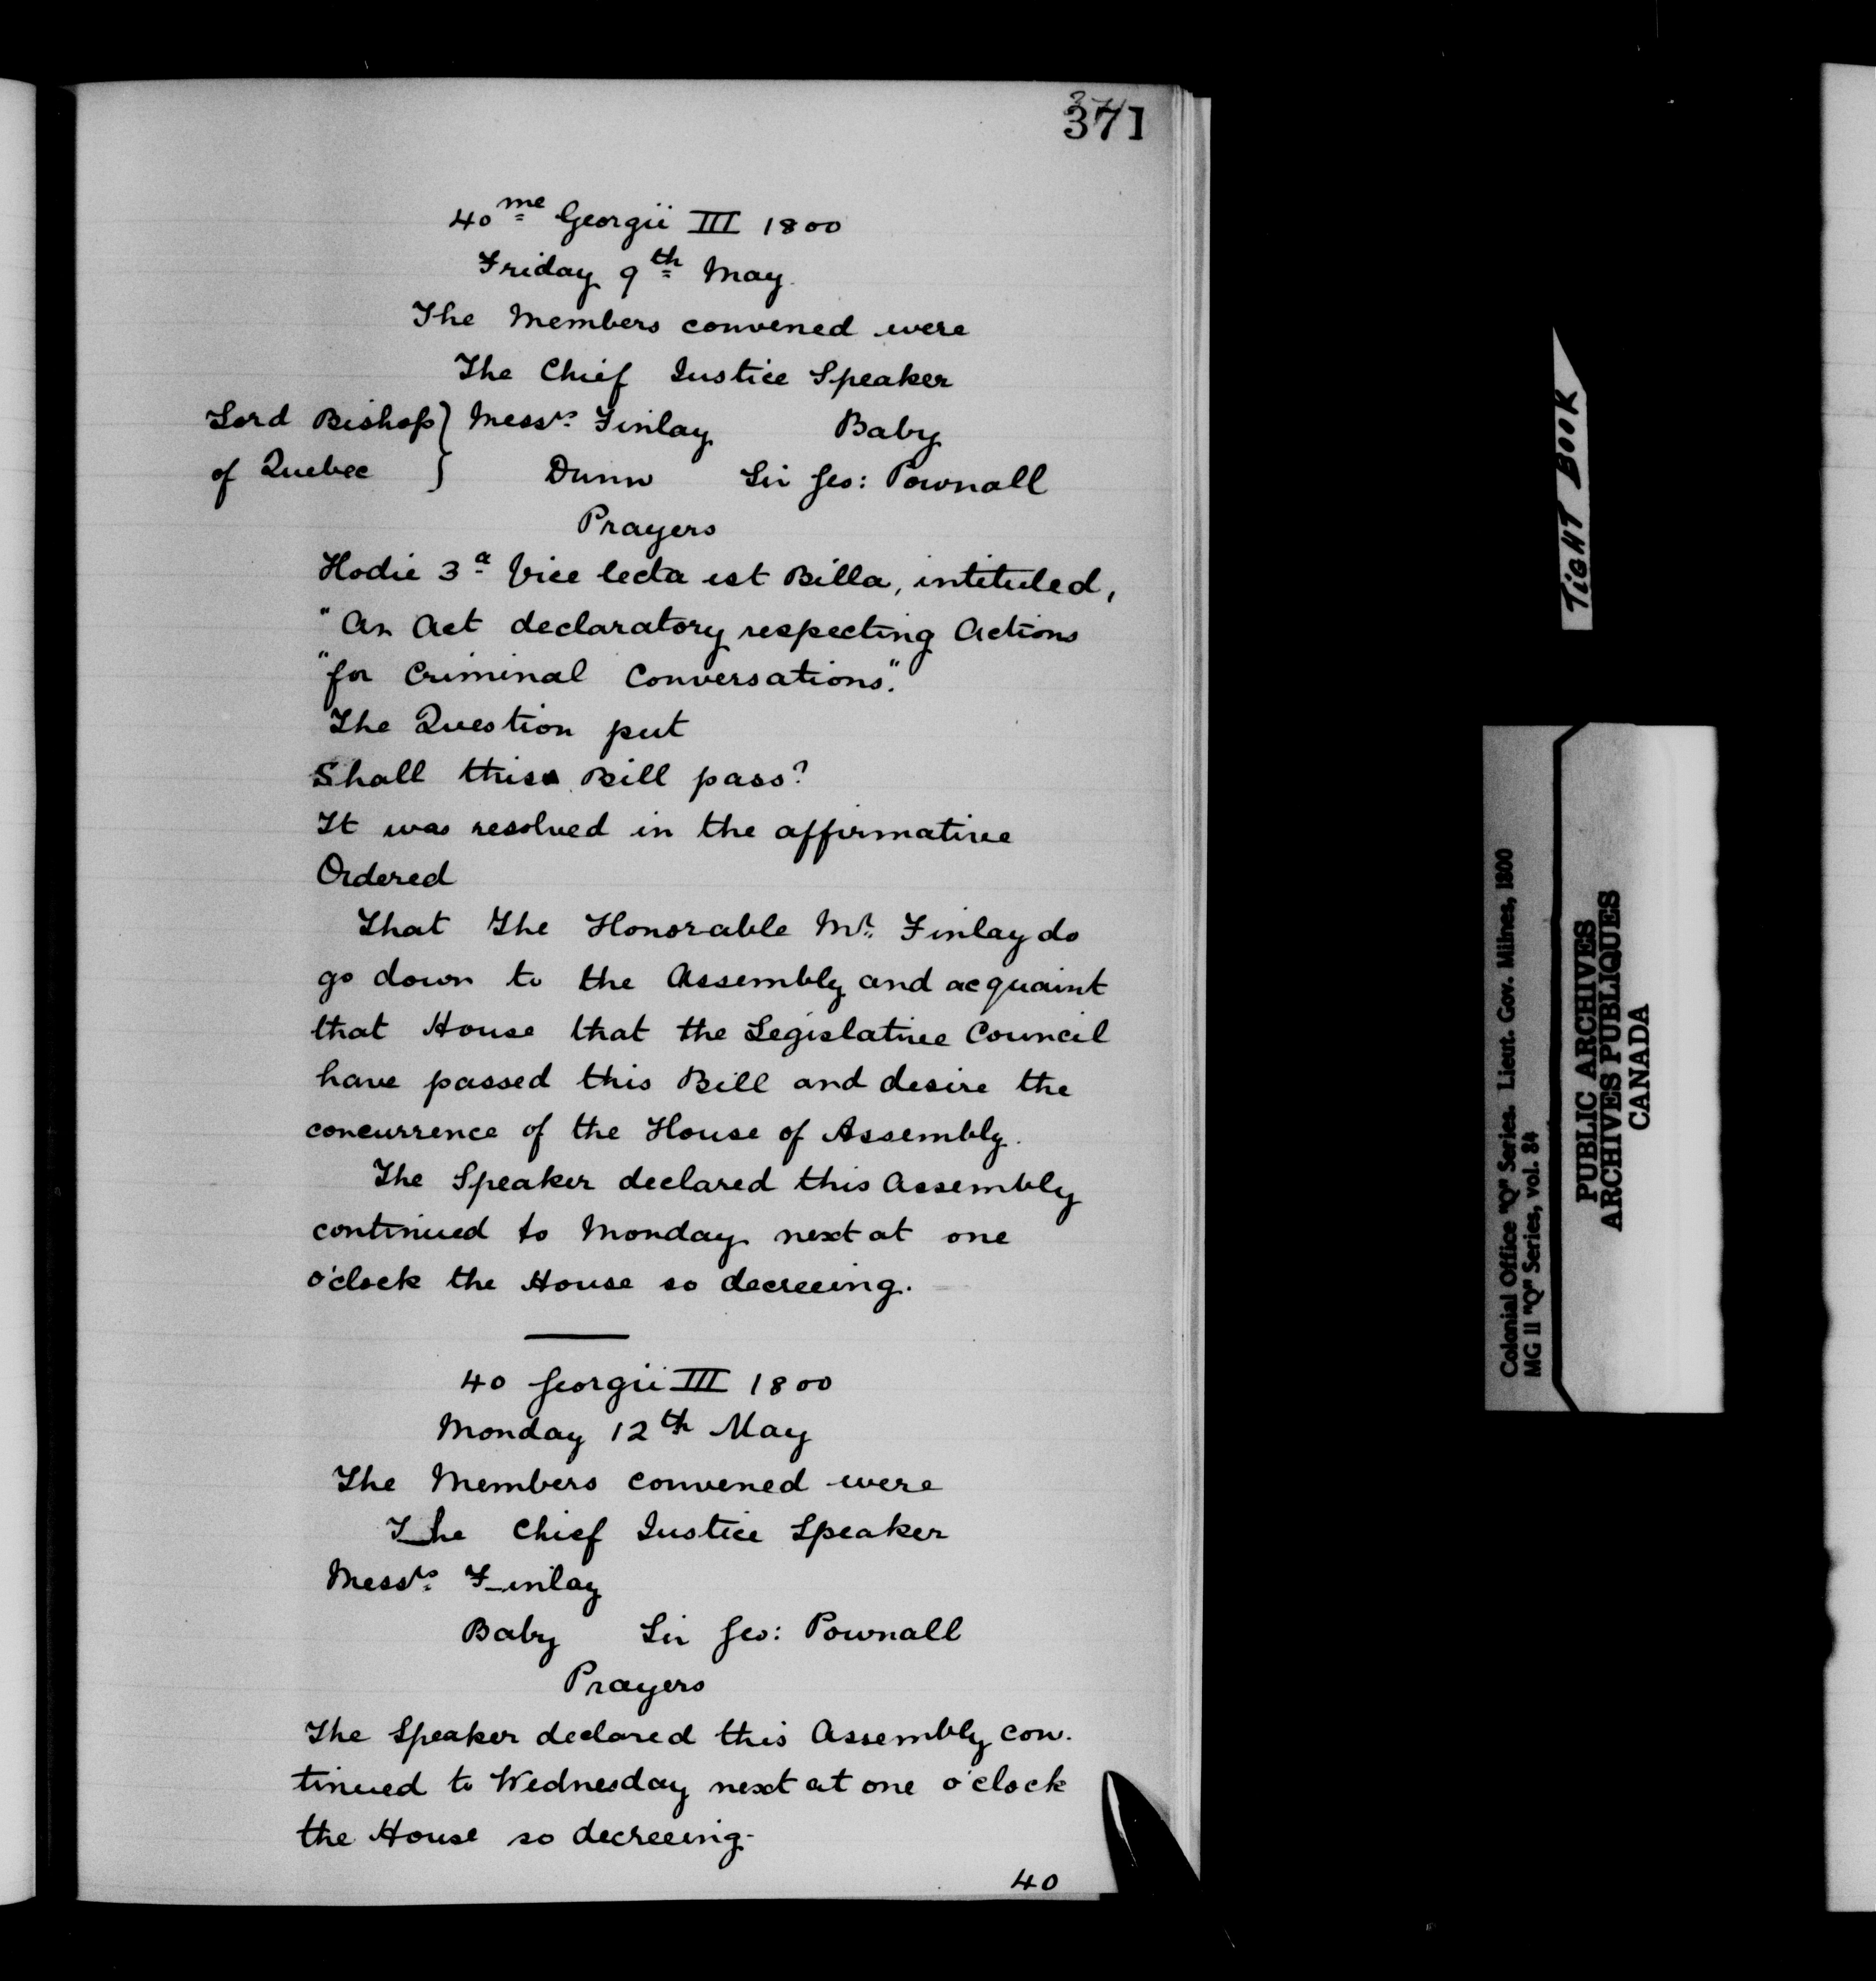 371
40me Georgii III 1800
Friday 9th May.
The Members convened were
The Chief Justice Speaker
Lord Bishop } Messrs. Finlay Baby
of Quebec } Dunn Sir Geo: Pownall
Prayers
Hodie 3a Vice lecta est Billa, intituled,
"An Act declaratory respecting Actions
"for Criminal Conversations."
The Question put
Shall this Bill pass?
It was resolved in the affirmative
Ordered
That The Honorable Mr. Finlay do
go down to the Assembly and acquaint
that House that the Legislative Council
have passed this Bill and desire the
concurrence of the House of Assembly.
The Speaker declared this Assembly
continued to Monday next at one
o'clock the House so decreeing.
40 Georgii III 1800
Monday 12th May
The Members convened were
The Chief Justice Speaker
Messrs. Finlay
Baby Sir Geo: Pownall
Prayers
The Speaker declared this Assembly con-
tinued to Wednesday next at one o'clock
the House so decreeing.
40
TIGHT BOOK
Colonial Office "Q" Series. Lieut. Gov. Milnes, 1800
MG 11 "Q" Series, vol. 84
PUBLIC ARCHIVES
ARCHIVES PUBLIQUES
CANADA